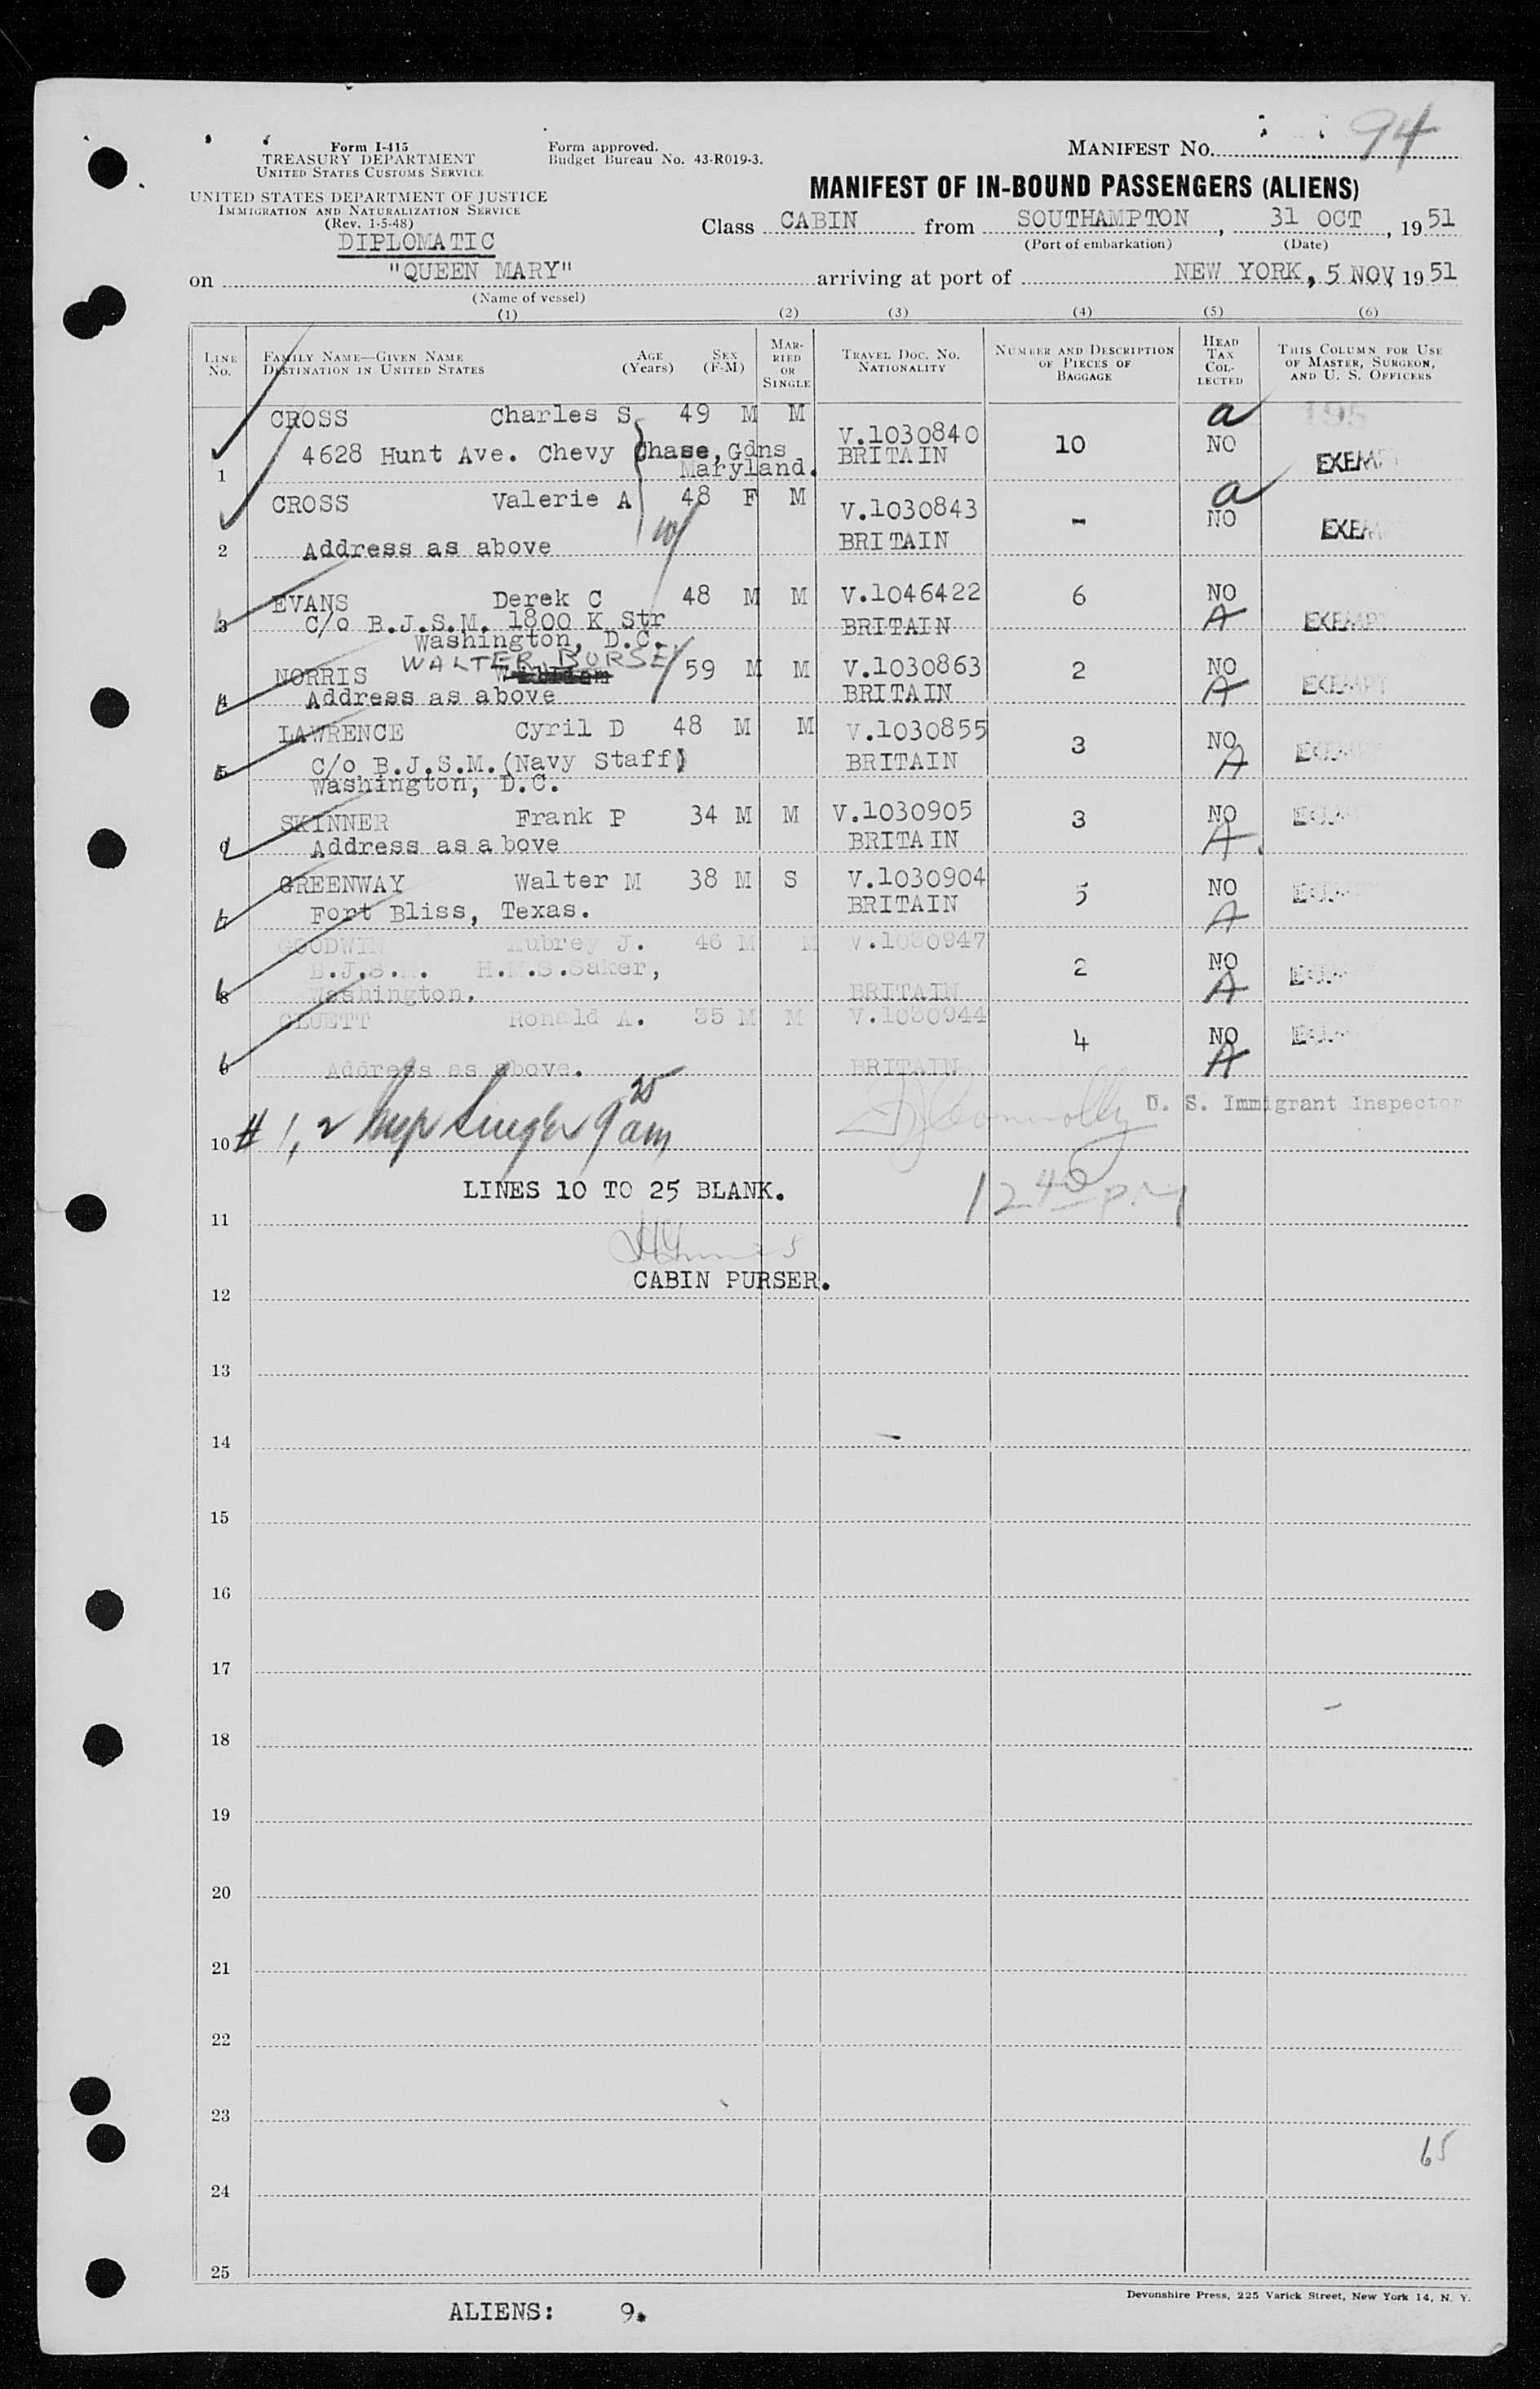 MANIFEST NO. 94
Form I-415
TREASURY DEPARTMENT
UNITED STATES CUSTOMS SERVICE
Form approved.
Budget Bureau No. 43-R019-3.
UNITED STATES DEPARTMENT OF JUSTICE
IMMIGRATION AND NATURALIZATION SERVICE
(Rev. 1-5-48)
DIPLOMATIC
MANIFEST OF IN-BOUND PASSENGERS (ALIENS)
Class CABIN from SOUTHAMPTON, 31 OCT, 1951
(Port of embarkation) (Date)
on "QUEEN MARY" arriving at port of NEW YORK, 5 NOV, 1951
(Name of vessel)
(1) (2) (3) (4) (5) (6)
LINE NO. FAMILY NAME—GIVEN NAME DESTINATION IN UNITED STATES AGE (Years) SEX (F-M) MARRIED OR SINGLE TRAVEL DOC. NO. NATIONALITY NUMBER AND DESCRIPTION OF PIECES OF BAGGAGE HEAD TAX COLLECTED THIS COLUMN FOR USE OF MASTER, SURGEON, AND U. S. OFFICERS
CROSS Charles S. 49 M M V.1030840 10 a NO EXEMP
4628 Hunt Ave. Chevy Chase, Gdns BRITAIN
1 Maryland.
CROSS Valerie A 48 F M V.1030843 - a NO EXEM
2 Address as above BRITAIN
EVANS Derek C 48 M M V.1046422 6 NO A EXEMPT
3 C/o B.J.S.M. 1800 K Str BRITAIN
Washington, D.C.
NORRIS WALTER BORSEY 59 M M V.1030863 2 NO A EXEMPT
4 Address as above BRITAIN
LAWRENCE Cyril D 48 M M V.1030855 3 NO A
5 C/o B.J.S.M.(Navy Staff) BRITAIN
Washington, D.C.
SKINNER Frank P 34 M M V.1030905 3 NO A
6 Address as a bove BRITAIN
GREENWAY Walter M 38 M S V.1030904 5 NO A
7 Fort Bliss, Texas. BRITAIN
GOODWIN Aubrey J. 46 M M V.1030947 2 NO A
B.J.S.M. H.M.S.Saker,
8 Washington. BRITAIN
CLUETT Ronald A. 35 M M V.1030944 4 NO A
9 Address as above. BRITAIN
U. S. Immigrant Inspector
10 # 1, 2 9 25 am
12 40 PM
LINES 10 TO 25 BLANK.
11
CABIN PURSER.
12
13
14
15
16
17
18
19
20
21
22
23
65
24
25
Devonshire Press, 225 Varick Street, New York 14, N. Y.
ALIENS: 9.